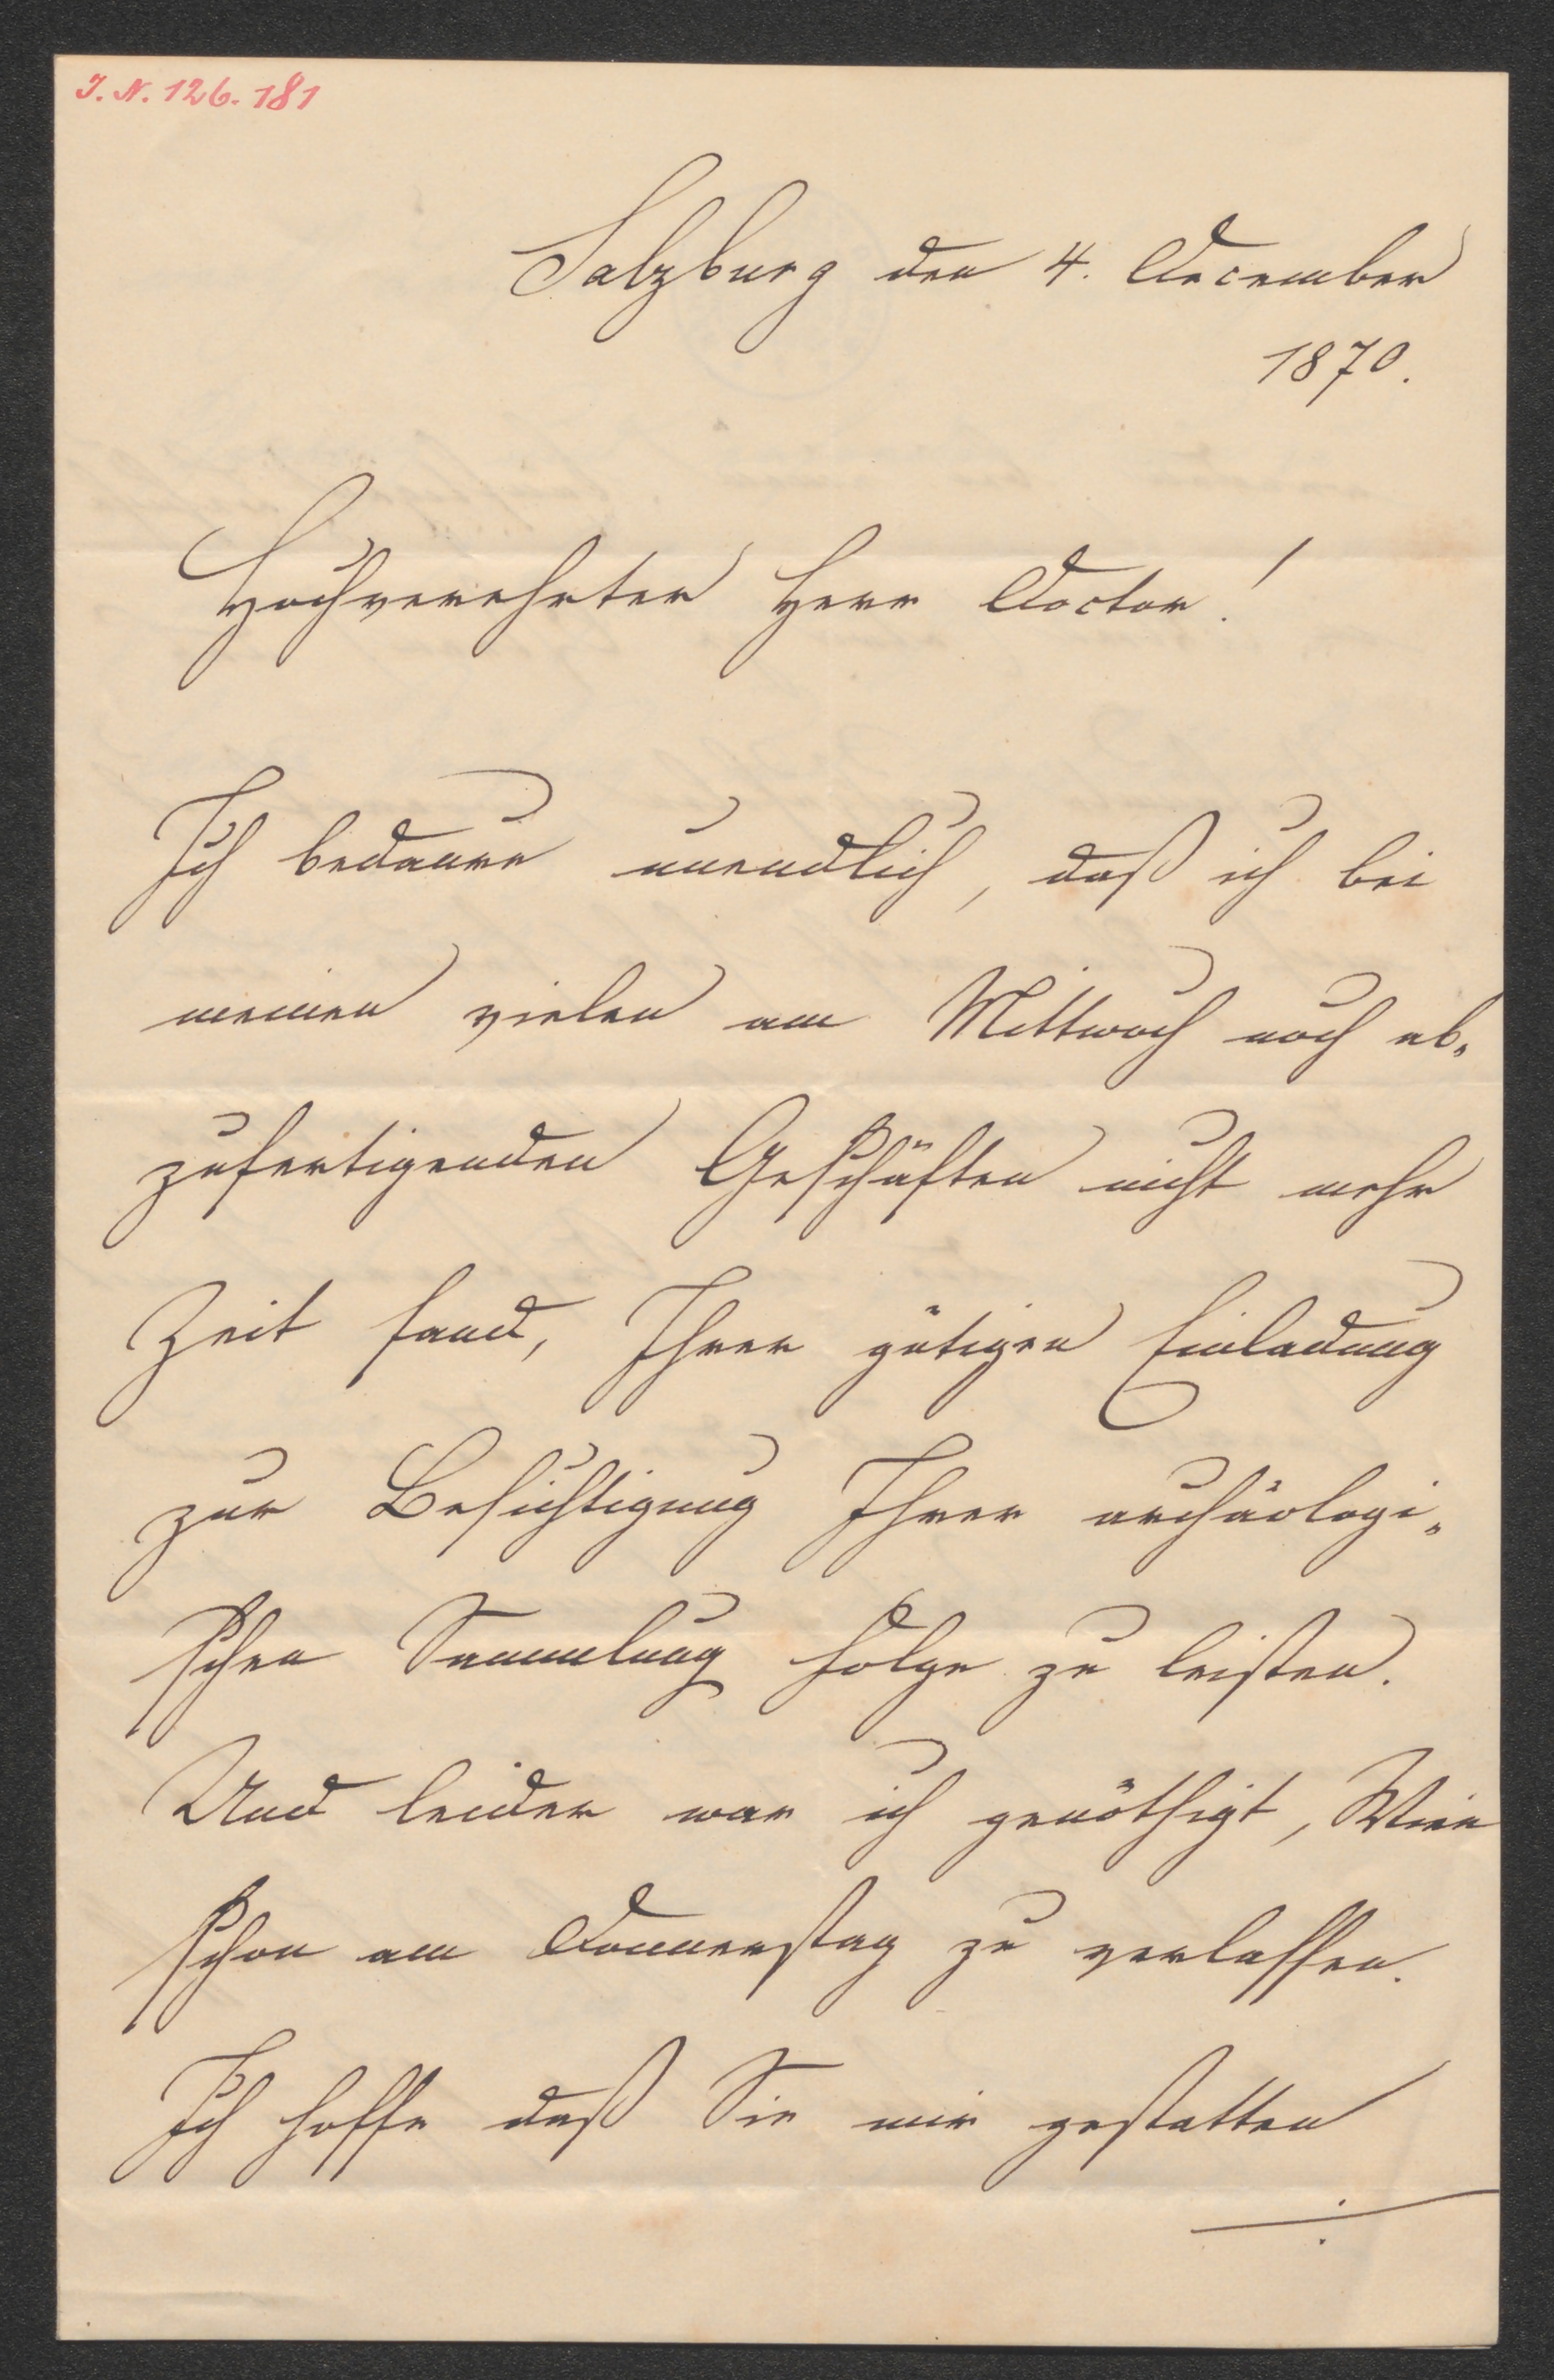 I. N. 126.181
Salzburg den 4. December
1870.
Hochverehrter Herr Doctor!
Ich bedaure unendlich, daß ich bei
meinen vielen am Mittwoch noch ab„
zufertigenden Geschäften nicht mehr
Zeit fand, Ihrer gütigen Einladung
zur Besichtigung Ihrer archäologi„
schen Sammlung Folge zu leisten.
Und leider war ich genöthigt, Wien
schon am Donnerstag zu verlassen.
Ich hoffe daß Sie mir gestatten